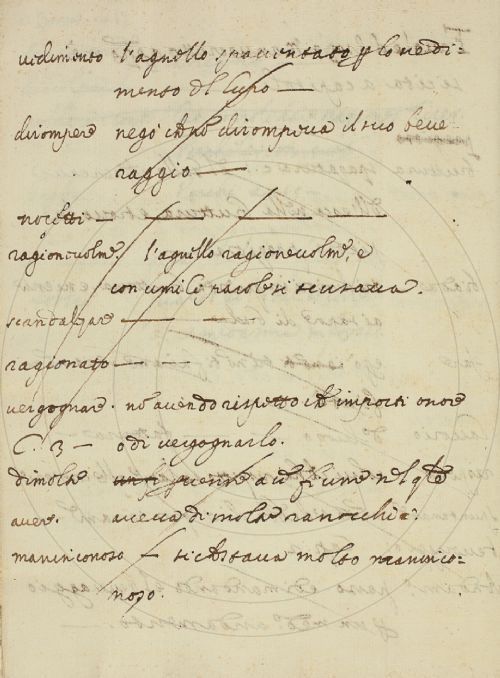 vedimento l'agnello spaventato p lo vedi-
mento del lupo —
dirompere negò che no dirompeva il suo beve-
raggio —
nocetti —
ragionevolme. l'agnello ragionevolme, e
con umili parole si scusava.
scandalizare —
ragionato —
vergognare. no avendo rispetto che importi onore
C. 3 — o di vergognarlo.
dimolte venne a un fiume nel qle
avere. aveva di molte ranocchie.
maninconoso — si stava molto maninco-
noso.